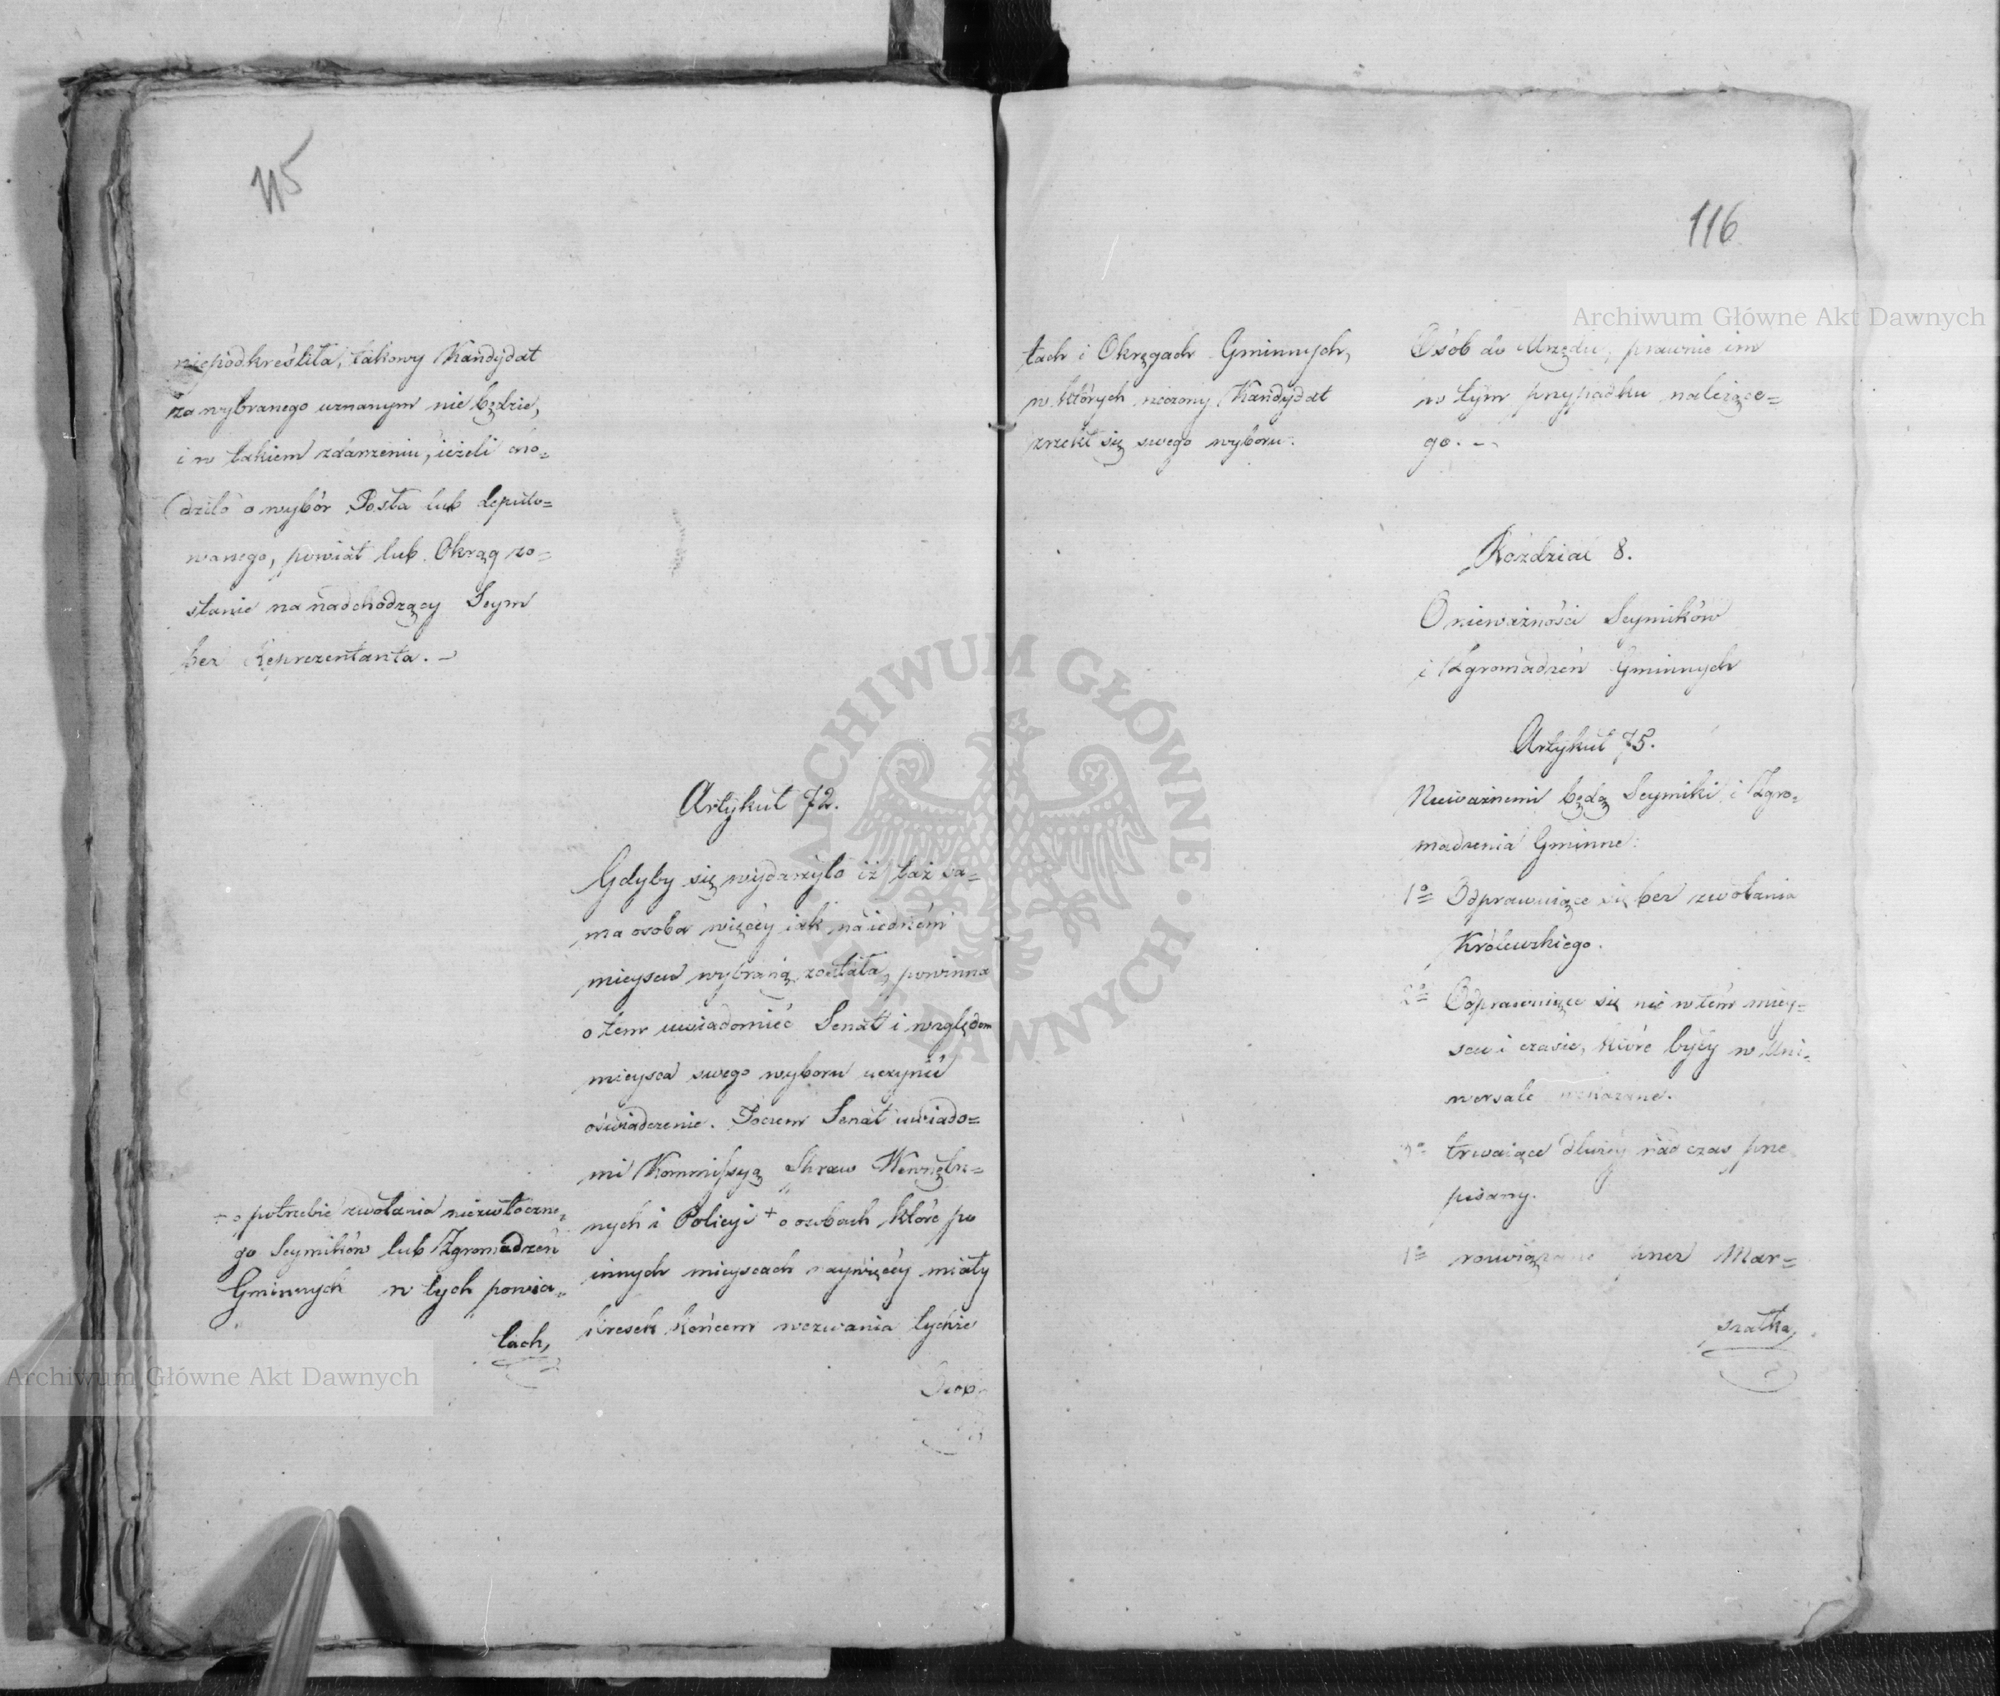 115
niepodkreśliła, takowy Kandydat
za wybranego uznanym nie będzie,
i w takiem zdarzeniu, ieżeli cho=
dziło o wybór Posła lub deputo=
wanego, powiat lub Okrąg zo=
stanie na nadchodzący Seym
bez Reprezentanta. –
+ o potrzebie zwołania niezwłoczne=
go Seymików lub Zgromadzeń
Gminnych w tych powia=
tach,
Artykuł 72.
Gdyby się wydarzyło iż taż sa=
ma osoba więcéy iak na iedném
mieyscu wybraną została, powinna
o tem uwiadomić Senat i względem
mieysca swego wyboru uczynić
oświadczenie. Poczem Senat uwiado=
mi Kommissyą Spraw Wewnętrz=
nych i Policyi + o osobach które po
innych mieyscach naywięcéy miały
kresek końcem wezwania tychże
Osób
116
tach i Okręgach Gminnych,
w których rzeczony Kandydat
zrzekł się swego wyboru.
Osób do Urzędu, prawnie im
w tym przypadku należące=
go. –
Rozdział 8.
O nieważności Seymików
i Zgromadzeń Gminnych
Artykuł 75.
Nieważnemi będą Seymiki i Zgro=
madzenia Gminne:
1o Odprawuiące się bez zwołania
Królewskiego.
2o Odprawuiące się nie w tém miey=
scu i czasie, które były w Uni=
wersale wskazane.
3o trwaiące dłużéy nad czas prze
pisany.
rozwiązane przez Mar=
szałka,
Archiwum Główne Akt Dawnych
Archiwum Główne Akt Dawnych
ARCHIWUM GŁÓWNE AKT DAWNYCH